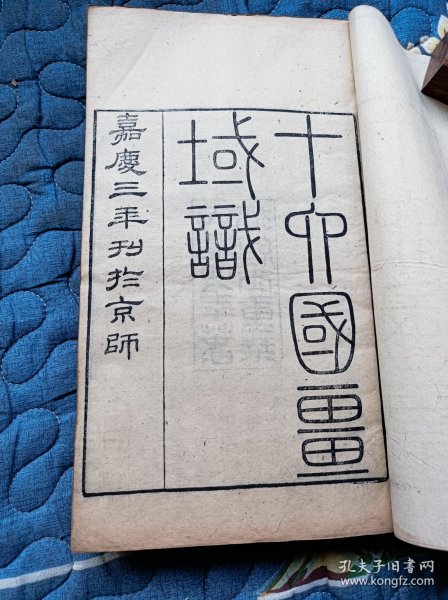 十六國畺
域識
嘉慶三年刊於京師
孔夫子旧书网
www.kongfz.com